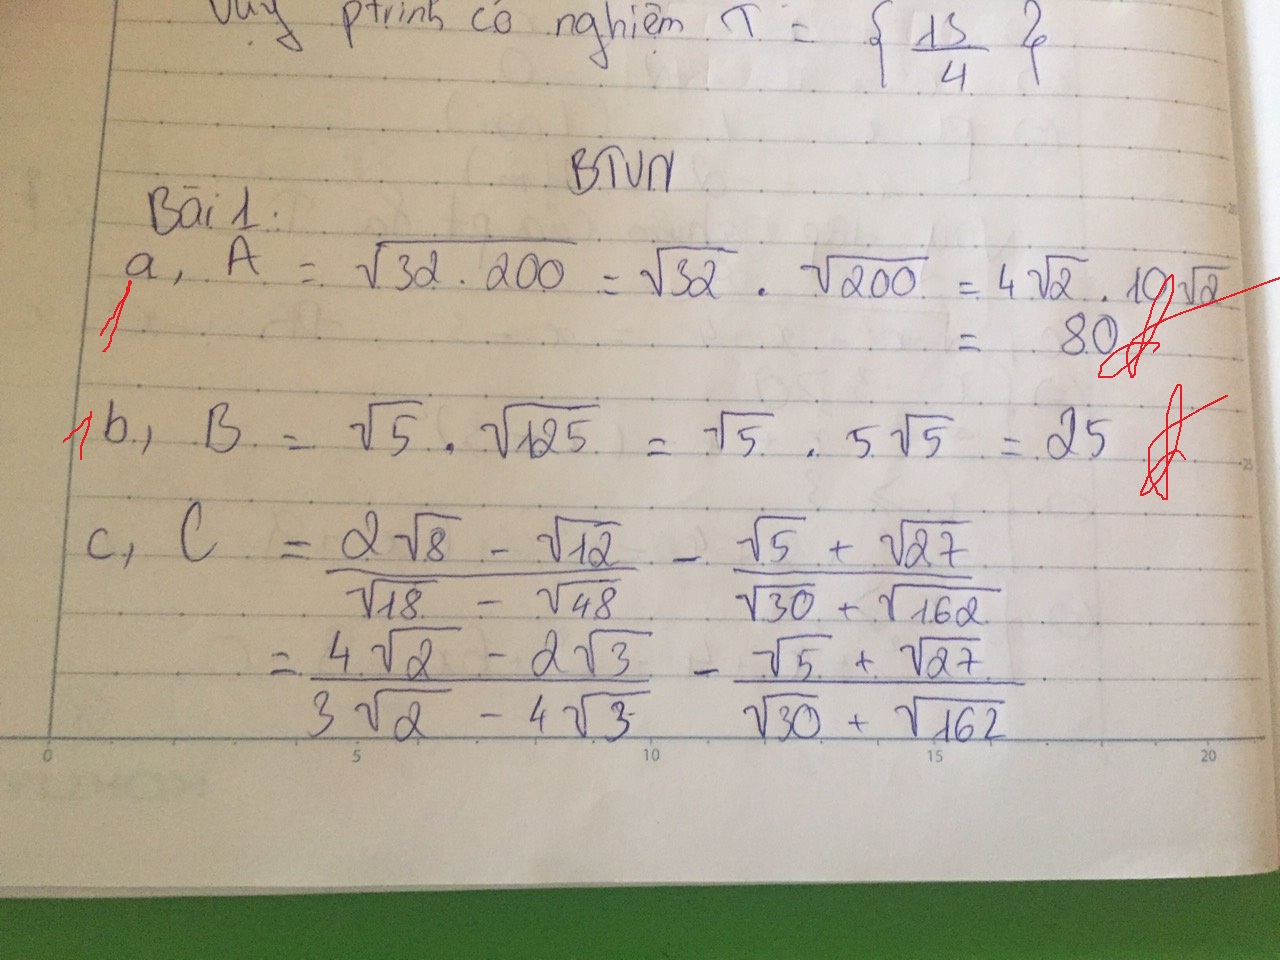 Vậy ptrình có nghiệm T = { 13/4 }
BTVN
Bài 1:
a, A = √32.200 = √32 . √200 = 4√2 . 10√2
= 80
1
1 b, B = √5 . √125 = √5 . 5√5 = 25
c, C = (2√8 - √12)/(√18 - √48) - (√5 + √27)/(√30 + √162)
= (4√2 - 2√3)/(3√2 - 4√3) - (√5 + √27)/(√30 + √162)
0 5 10 15 20